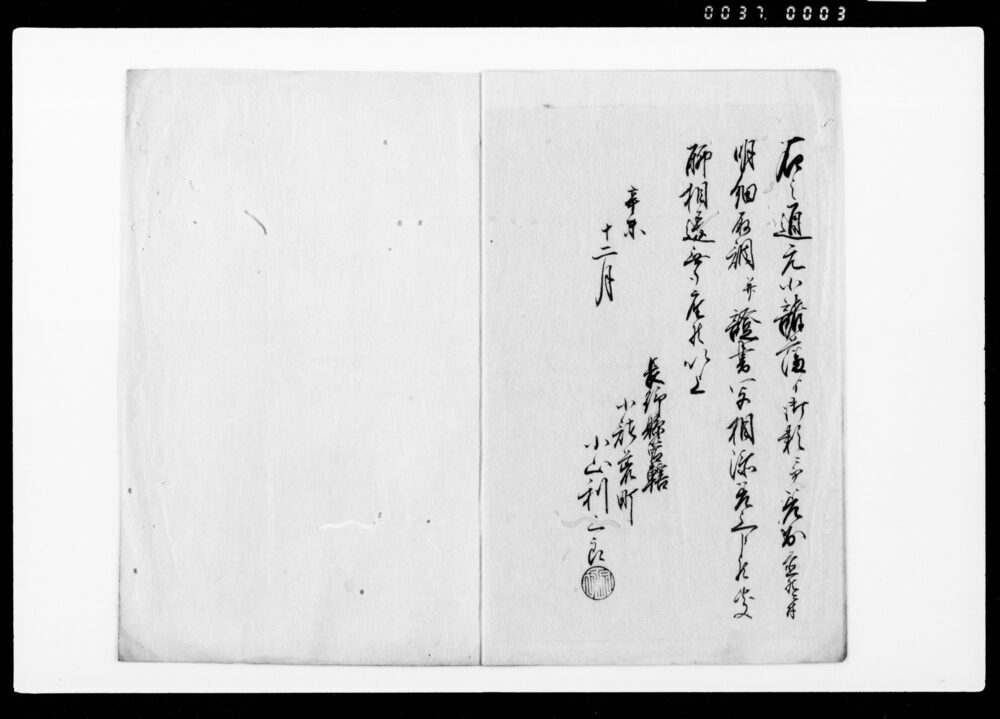 0037. 0003
右之通元小諸藩ゟ御
明細取調并證書写相添差上申候処
聊相違無御座候以上
辛未
十二月
長野縣管轄
小諸荒町
小山利三郎